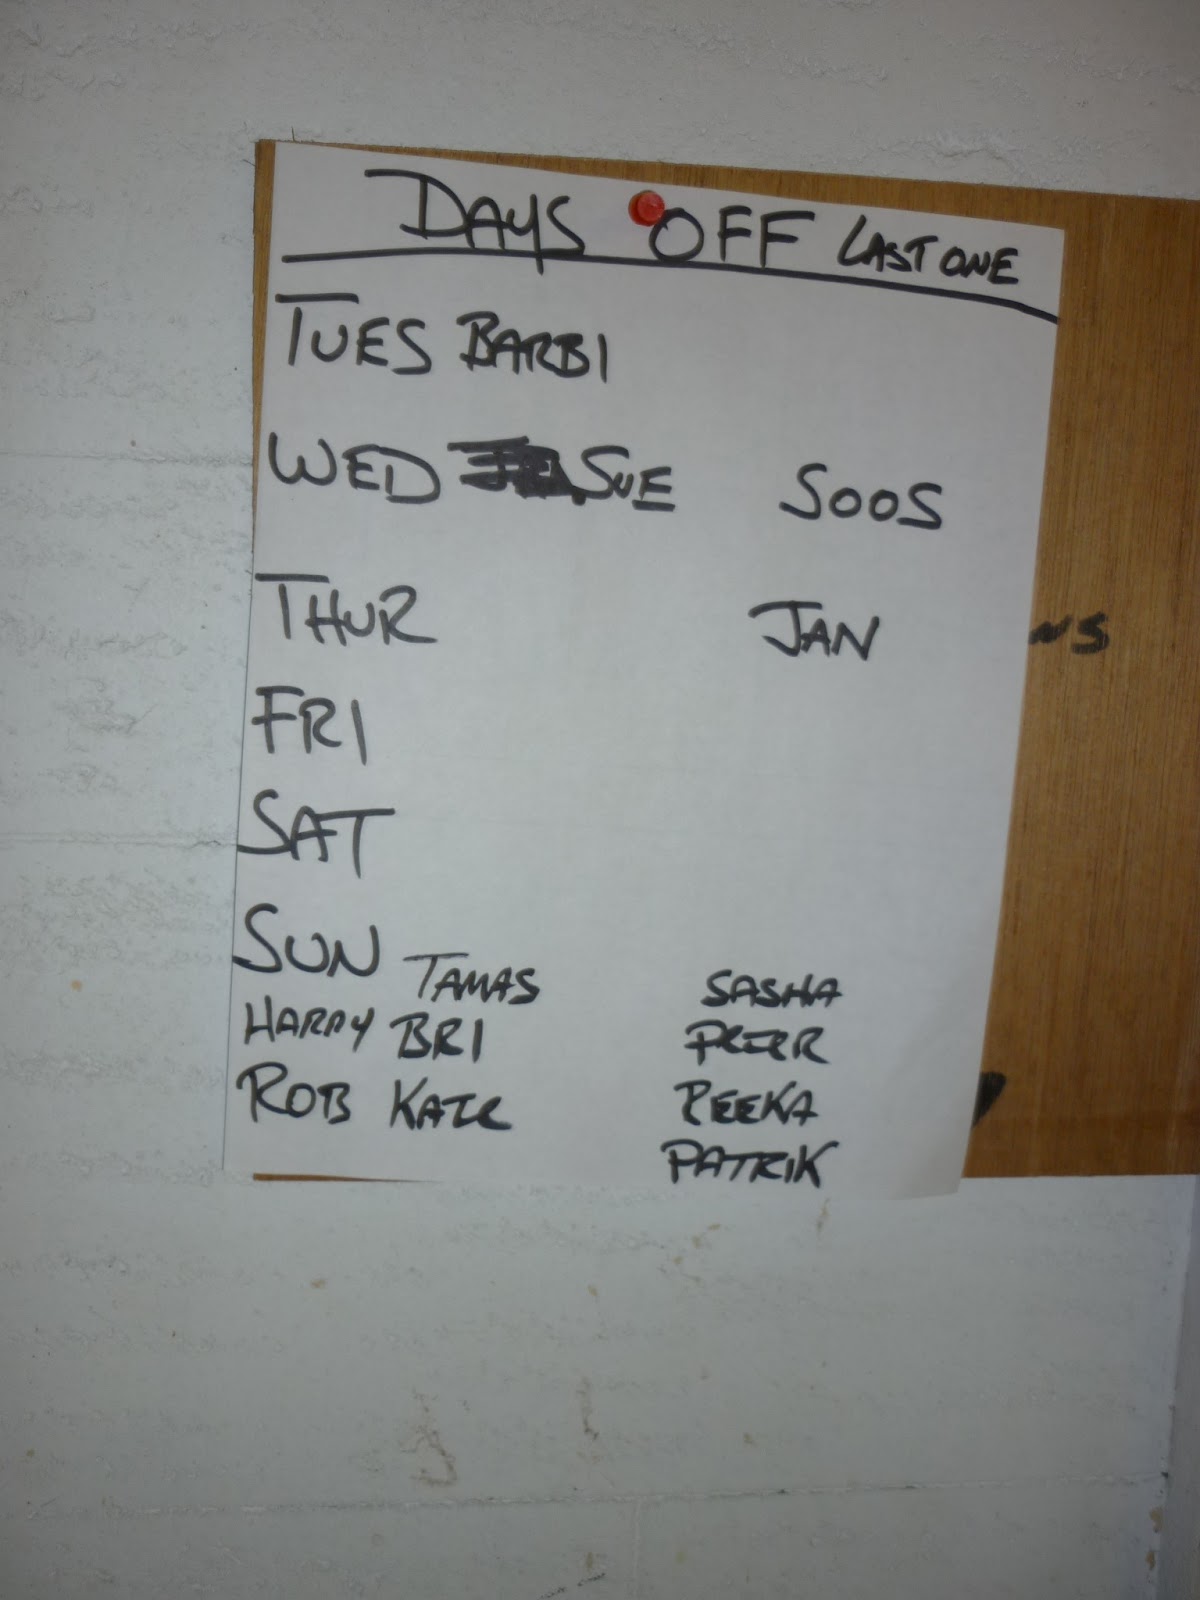 DAYS OFF LAST ONE
TUES BARBI
WED SUE SOOS
THUR JAN
FRI
SAT
SUN TAMAS SASHA
HARRY BRI PETER
ROB KATE REEKA
PATRIK
NS